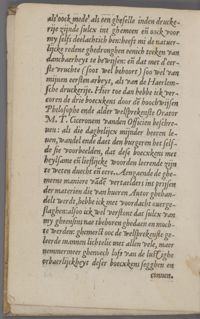 als oock mede als een gheselle inden drucke-
rije zijnde sulcx int ghemeen eñ oock voor
my selfs deelachtich ben: heeft mi de natuer-
lijcke redene ghedronghen eenich teeken van
danckbaerheyt te bewijsen: eñ dat met d'eer-
ste vruchte (soot wel behoort) soo wel van
mijnen eersten arbeyt, als van de Haerlem-
sche druckerije. Hier toe dan hebbe ick ver-
coren de drie boecxkens door dē hoochwijsen
Philosophe ende alder welsprekenste Orator
M. T. Ciceronem vanden Officien beschre-
uen: als die daghelijcx mijnder heeren le-
uen, wandel ende daet den burgeren het self-
de sie voorbeelden, dat dese boecxkens met
heylsame eñ lieflijcke woorden leerende zijn
te weten duecht eñ eere. Aengaende de ghe-
mene maniere vādē vertaelders int prijsen
der materien die van hueren Autor ghehan-
delt werdt, hebbe ick met voordacht overge-
slaghen: alsoo ick wel verstont dat sulcx van
my gheensins nae tbehoren ghedaen en moch-
te werden: ghemerct ooc de welsprekenste ge-
leerde mannen lichtelic met allen vele, maer
nemmermeer ghenoech lofs van de lustighe
orbaerlijckheyt deser boecxkens segghen en
connen.